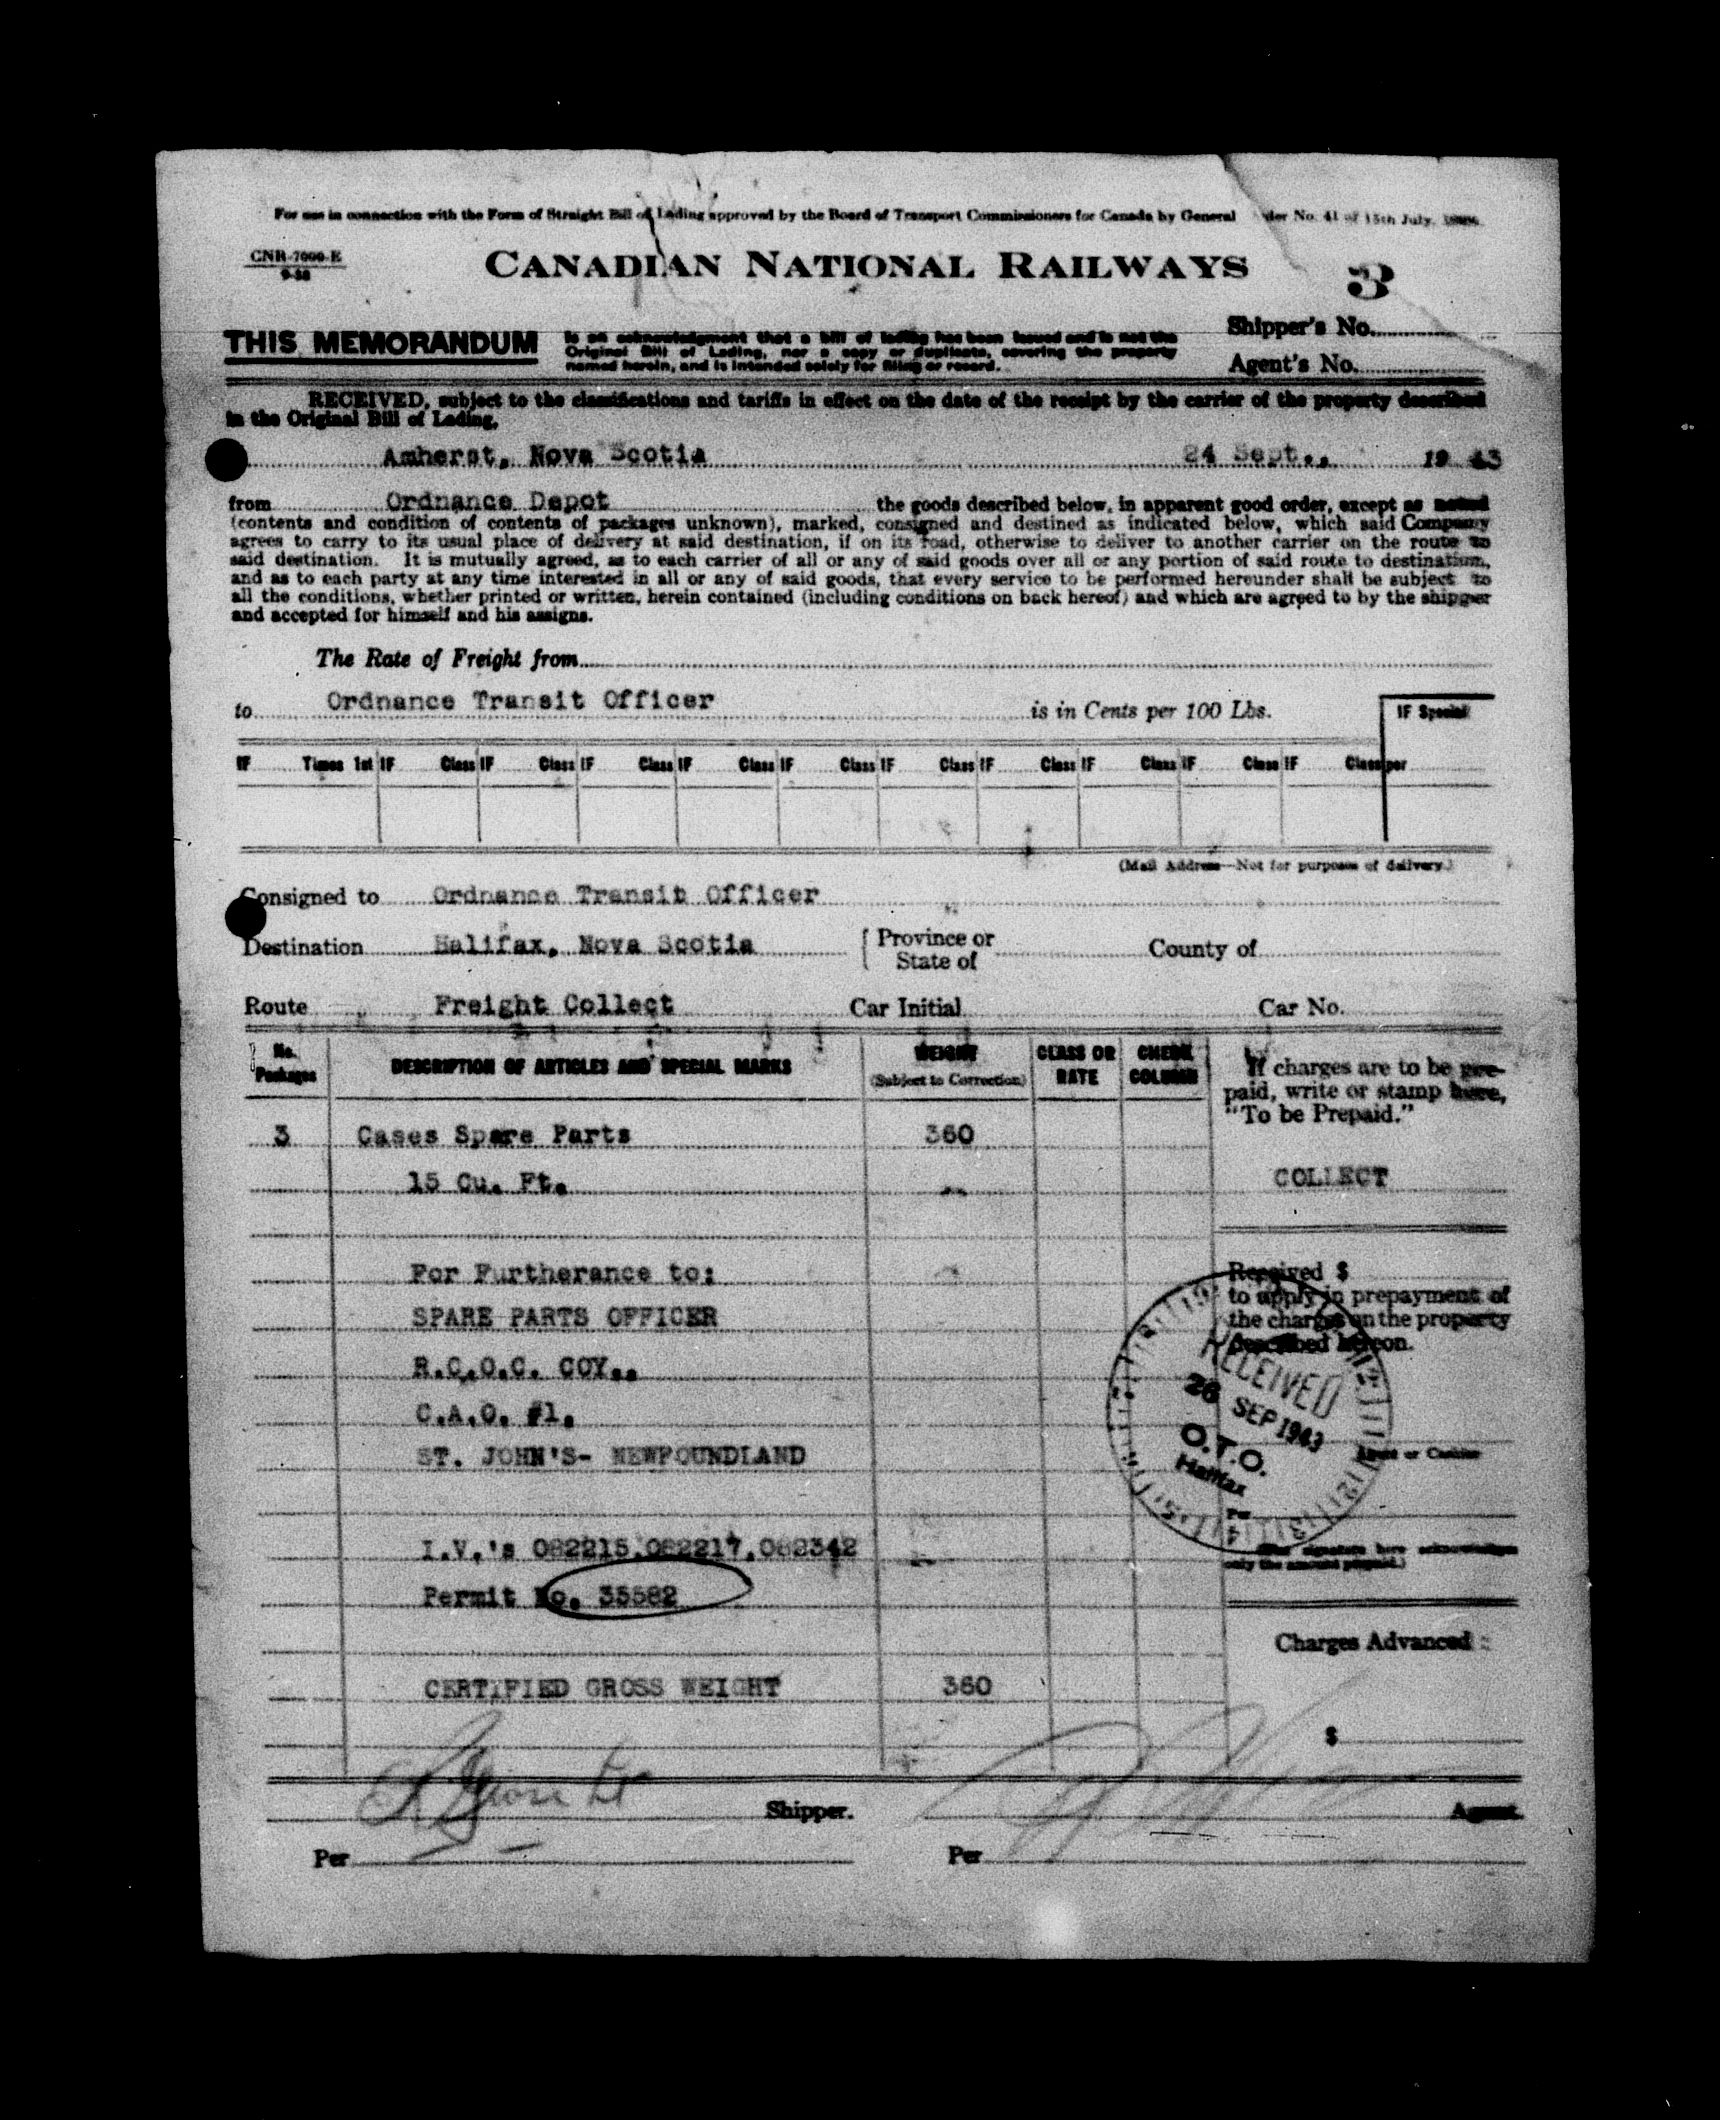 For use in connection with the Form of Straight Bill of Lading approved by the Board of Transport Commissioners for Canada by General Order No. 41 of 15th July,
CNR-7000-E
CANADIAN NATIONAL RAILWAYS
3
THIS MEMORANDUM
is an acknowledgment that a bill of lading has been issued and is not the
Original Bill of Lading, nor a copy or duplicate, covering the property
named herein, and is intended solely for filing or record.
Shipper's No.
Agent's No.
RECEIVED, subject to the classifications and tariffs in effect on the date of the receipt by the carrier of the property described
in the Original Bill of Lading,
Amherst, Nova Scotia 24 Sept., 19 43
from Ordnance Depot the goods described below, in apparent good order, except as noted
(contents and condition of contents of packages unknown), marked, consigned and destined as indicated below, which said Company
agrees to carry to its usual place of delivery at said destination, if on its road, otherwise to deliver to another carrier on the route to
said destination. It is mutually agreed, as to each carrier of all or any of said goods over all or any portion of said route to destination,
and as to each party at any time interested in all or any of said goods, that every service to be performed hereunder shall be subject to
all the conditions, whether printed or written, herein contained (including conditions on back hereof) and which are agreed to by the shipper
and accepted for himself and his assigns.
The Rate of Freight from
to Ordnance Transit Officer is in Cents per 100 Lbs.
IF Special
IF Times 1st IF Class IF Class IF Class IF Class IF Class IF Class IF Class IF Class IF Class IF Class per
(Mail Address—Not for purposes of delivery.)
Consigned to Ordnance Transit Officer
Destination Halifax, Nova Scotia Province or State of County of
Route Freight Collect Car Initial Car No.
No. Packages DESCRIPTION OF ARTICLES AND SPECIAL MARKS WEIGHT (Subject to Correction) CLASS OR RATE CHECK COLUMN
If charges are to be pre-
paid, write or stamp here,
"To be Prepaid."
3 Cases Spare Parts 360
15 Cu. Ft.
COLLECT
For Furtherance to:
SPARE PARTS OFFICER
R.C.O.C. COY..
C.A.O. #1.
ST. JOHN'S- NEWFOUNDLAND
Received $
to apply in prepayment of
the charges on the property
described hereon.
RECEIVED
28 SEP 1943
O.T.O.
Halifax
Agent or Cashier
Per
(The signature here acknowledges
only the amount prepaid.)
I.V.'s 082215,082217,082342
Permit No. 35582
Charges Advanced:
CERTIFIED GROSS WEIGHT 360
$
Shipper.
Agent.
Per
Per